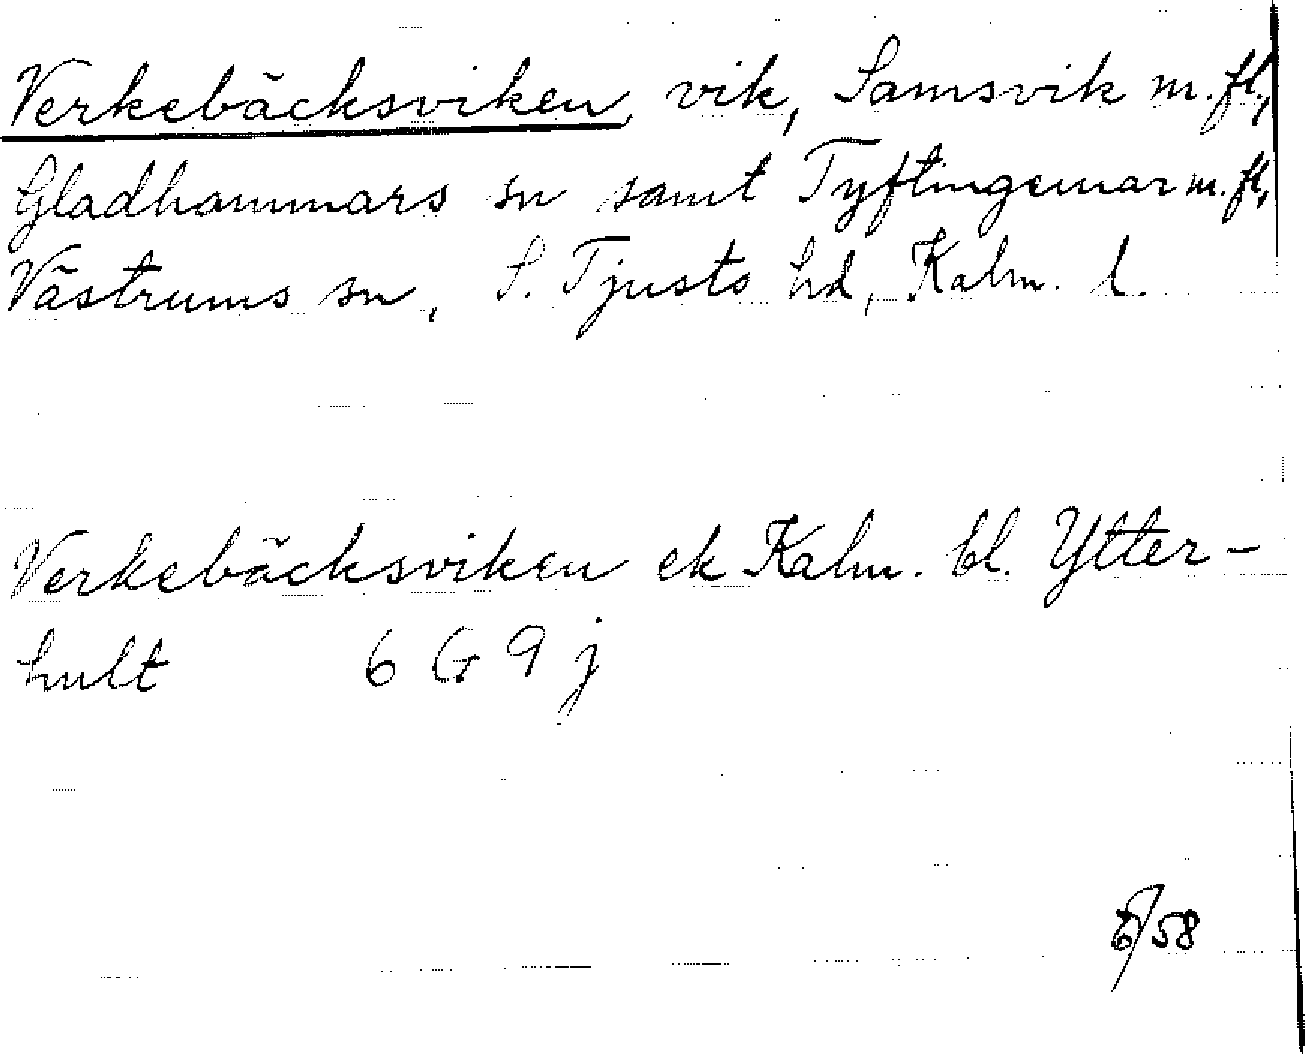 Verkebäcksviken, vik, Samsvik m.fl.,
Gladhammars sn samt Tyftingemar m.fl.,
Västrums sn, S. Tjusts hd, Kalm. l.
Verkebäcksviken ek Kalm. bl. Ytter-
hult 6 G 9 j
/58